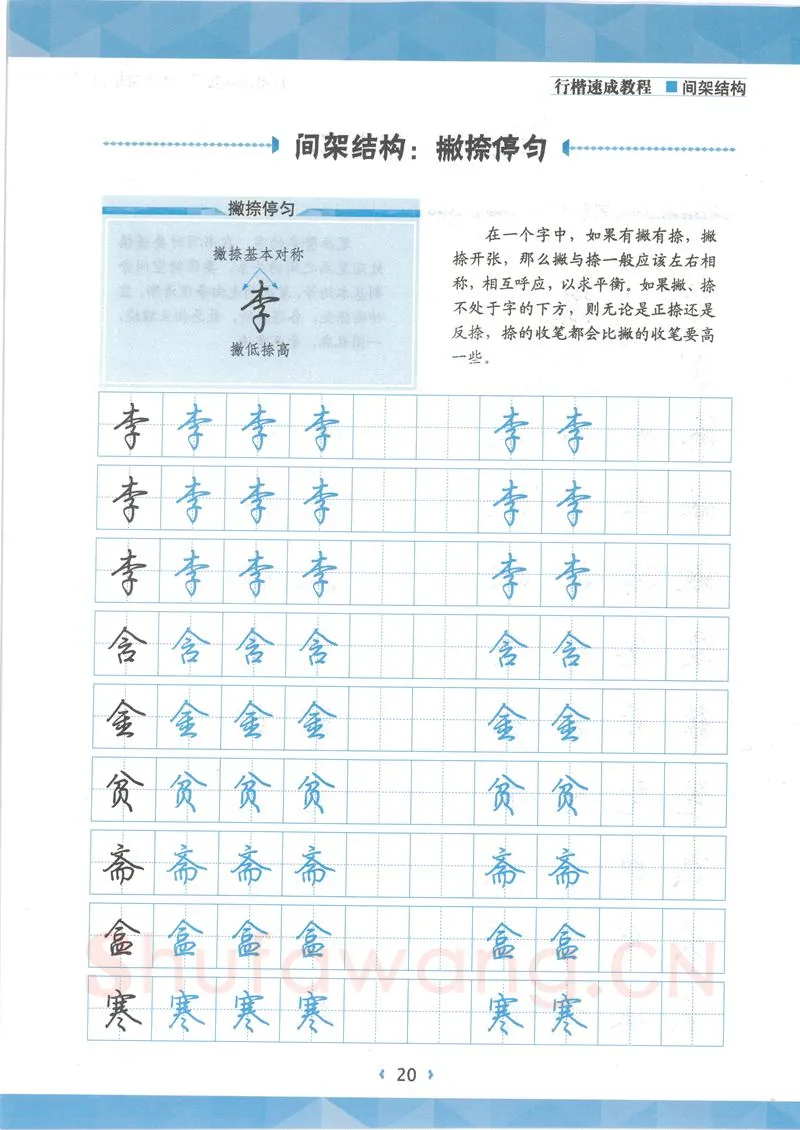 行楷速成教程 ■ 间架结构
间架结构：撇捺停匀
撇捺停匀
撇捺基本对称
李
撇低捺高
在一个字中，如果有撇有捺，撇
捺开张，那么撇与捺一般应该左右相
称，相互呼应，以求平衡。如果撇、捺
不处于字的下方，则无论是正捺还是
反捺，捺的收笔都会比撇的收笔要高
一些。
李 李 李 李 李 李
李 李 李 李 李 李
李 李 李 李 李 李
含 含 含 含 含 含
金 金 金 金 金 金
贫 贫 贫 贫 贫 贫
斋 斋 斋 斋 斋 斋
盒 盒 盒 盒 盒 盒
Shufawang.CN
寒 寒 寒 寒 寒 寒
20